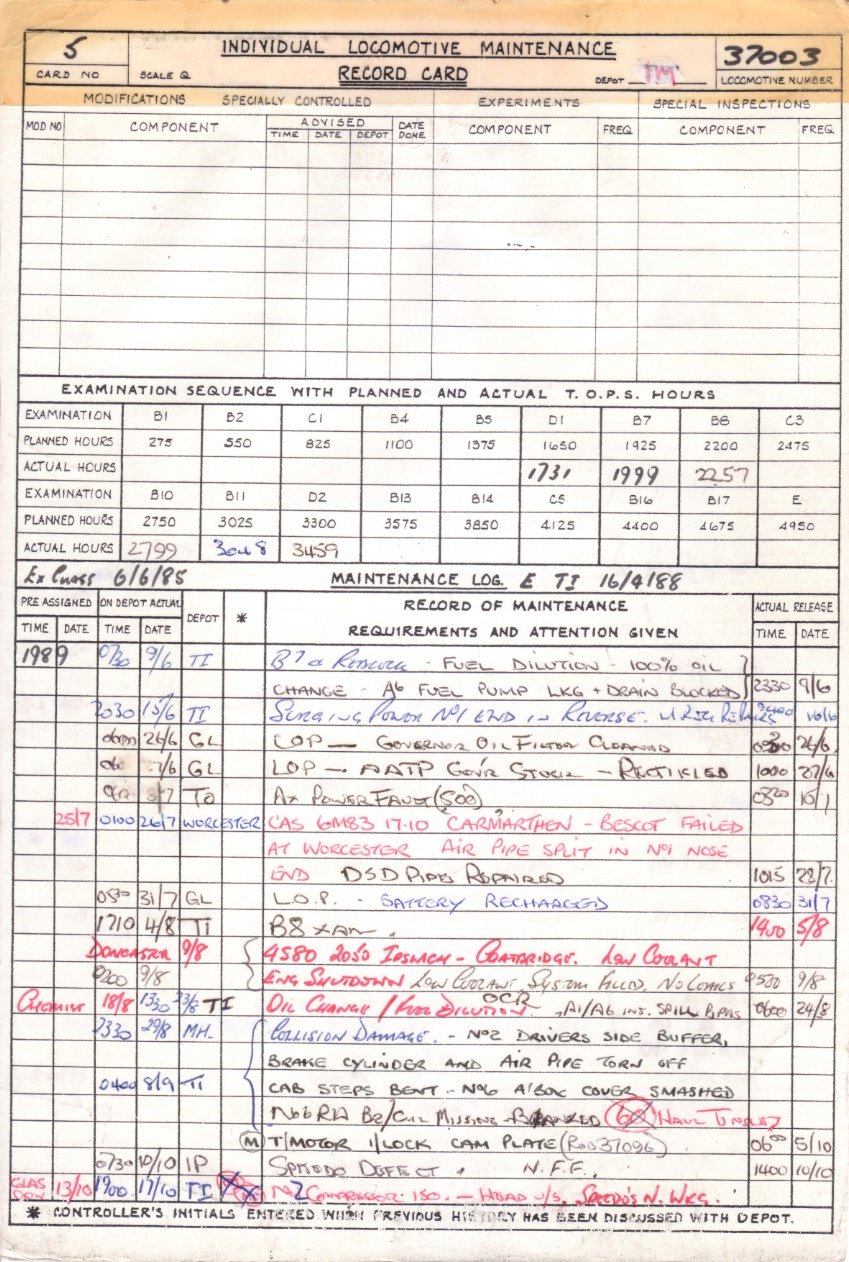 5 INDIVIDUAL LOCOMOTIVE MAINTENANCE 37003
CARD NO SCALE Q RECORD CARD DEPOT TI LOCOMOTIVE NUMBER
MODIFICATIONS SPECIALLY CONTROLLED EXPERIMENTS SPECIAL INSPECTIONS
MOD NO COMPONENT ADVISED DATE DONE COMPONENT FREQ COMPONENT FREQ
TIME DATE DEPOT
EXAMINATION SEQUENCE WITH PLANNED AND ACTUAL T.O.P.S. HOURS
EXAMINATION B1 B2 C1 B4 B5 D1 B7 B8 C3
PLANNED HOURS 275 550 825 1100 1375 1650 1925 2200 2475
ACTUAL HOURS 1731 1999 2257
EXAMINATION B10 B11 D2 B13 B14 C5 B16 B17 E
PLANNED HOURS 2750 3025 3300 3575 3850 4125 4400 4675 4950
ACTUAL HOURS 2799 3048 3459
Ex Class 6/6/85 MAINTENANCE LOG. E TI 16/4/88
PRE ASSIGNED ON DEPOT ACTUAL DEPOT * RECORD OF MAINTENANCE ACTUAL RELEASE
TIME DATE TIME DATE REQUIREMENTS AND ATTENTION GIVEN TIME DATE
1989 0730 9/6 TI B7 - FUEL DILUTION - 100% OIL
CHANGE - A6 FUEL PUMP LKG + DRAIN BLOCKED 2330 9/6
2030 15/6 TI SURGING POWER No1 END IN REVERSE. 16/6
26/6 GL LOP — GOVERNOR OIL FILTER CLEANED 26/6
/6 GL LOP — AATP GOV'R STUCK - RECTIFIED 1000 27/6
/7 TO Ax POWER FAULT (500)
25/7 0100 26/7 WORCESTER CAS 6M83 17·10 CARMARTHEN - BESCOT FAILED
AT WORCESTER AIR PIPE SPLIT IN No1 NOSE
END DSD PIPES REPAIRED 1015 28/7
0530 31/7 GL L.O.P. - BATTERY RECHARGED 0830 31/7
1710 4/8 TI B8 XAM. 1400 5/8
DONCASTER 9/8 4S80 2050 IPSWICH - COATBRIDGE. LOW COOLANT
0200 9/8 ENG SHUTDOWN LOW COOLANT, SYSTEM FILLED, NO LEAKS 0530 9/8
CHEMIST 18/8 1330 23/8 TI OIL CHANGE / FUEL DILUTION OCR - A1/A6 INJ. SPILL PIPES 0600 24/8
2330 29/8 MH. COLLISION DAMAGE. - No2 DRIVERS SIDE BUFFER,
BRAKE CYLINDER AND AIR PIPE TORN OFF
0400 8/9 TI CAB STEPS BENT - No6 A'BOX COVER SMASHED
No6 RH BR/CYL MISSING - BLANKED HAUL TINSLEY
M T/MOTOR I/LOCK CAM PLATE (ROB 37096) 0600 5/10
0730 10/10 IP SPEEDO DEFECT. N.F.F. 1400 10/10
13/10 1900 17/10 TI No2 COMPRESSOR ISO. - HEAD U/S, SPEEDO'S N. WKG.
* CONTROLLER'S INITIALS ENTERED WHEN PREVIOUS HISTORY HAS BEEN DISCUSSED WITH DEPOT.